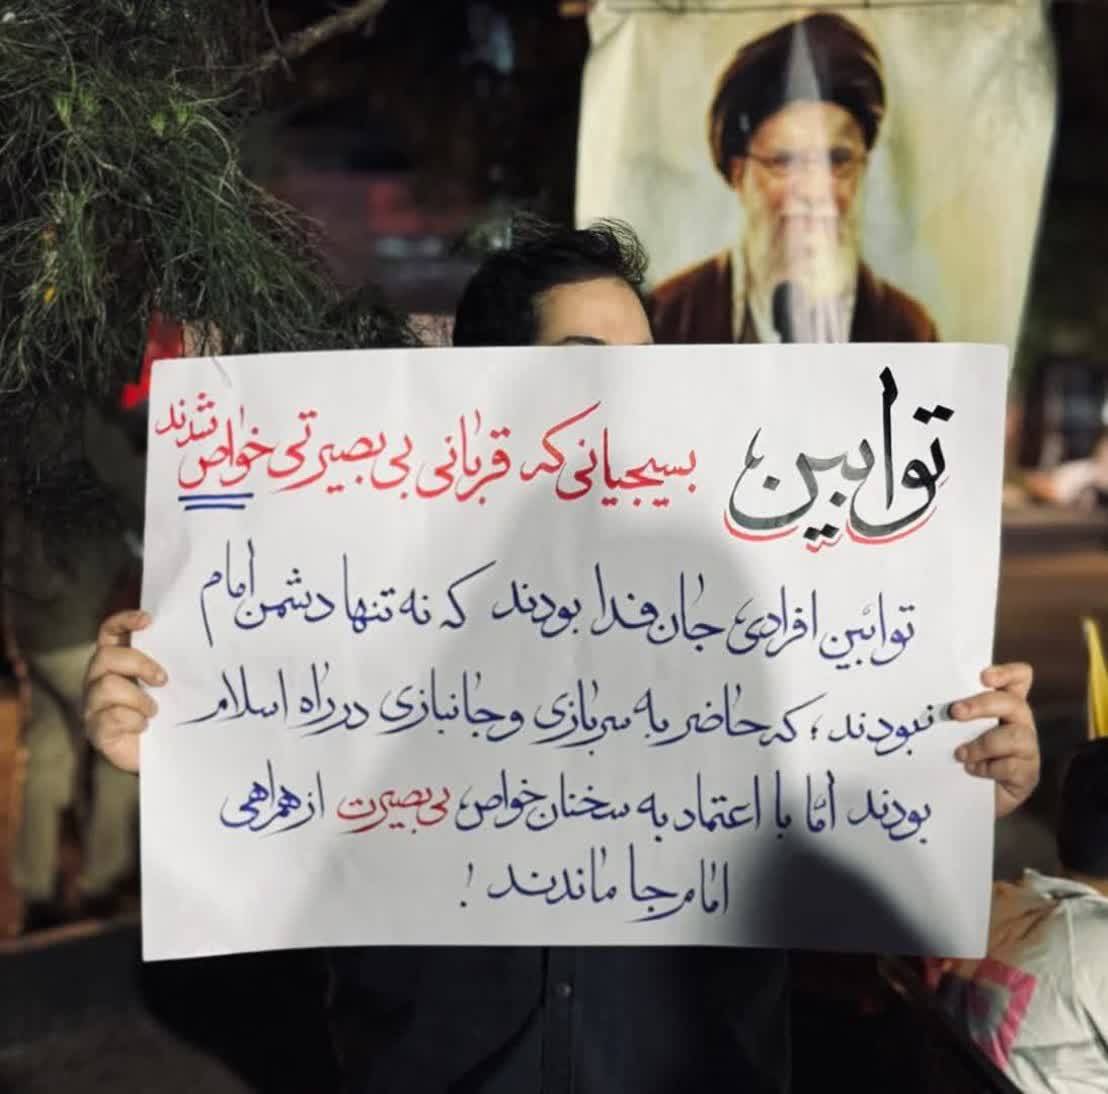 توابین، بسیجیانی که قربانی بی بصیرتی خواص شدند
توابین افرادی جان فدا بودند که نه تنها دشمن امام
نبودند؛ که حاضر به سربازی و جانبازی در راه اسلام
بودند اما با اعتماد به سخنان خواص بی بصیرت از همراهی
امام جا ماندند!